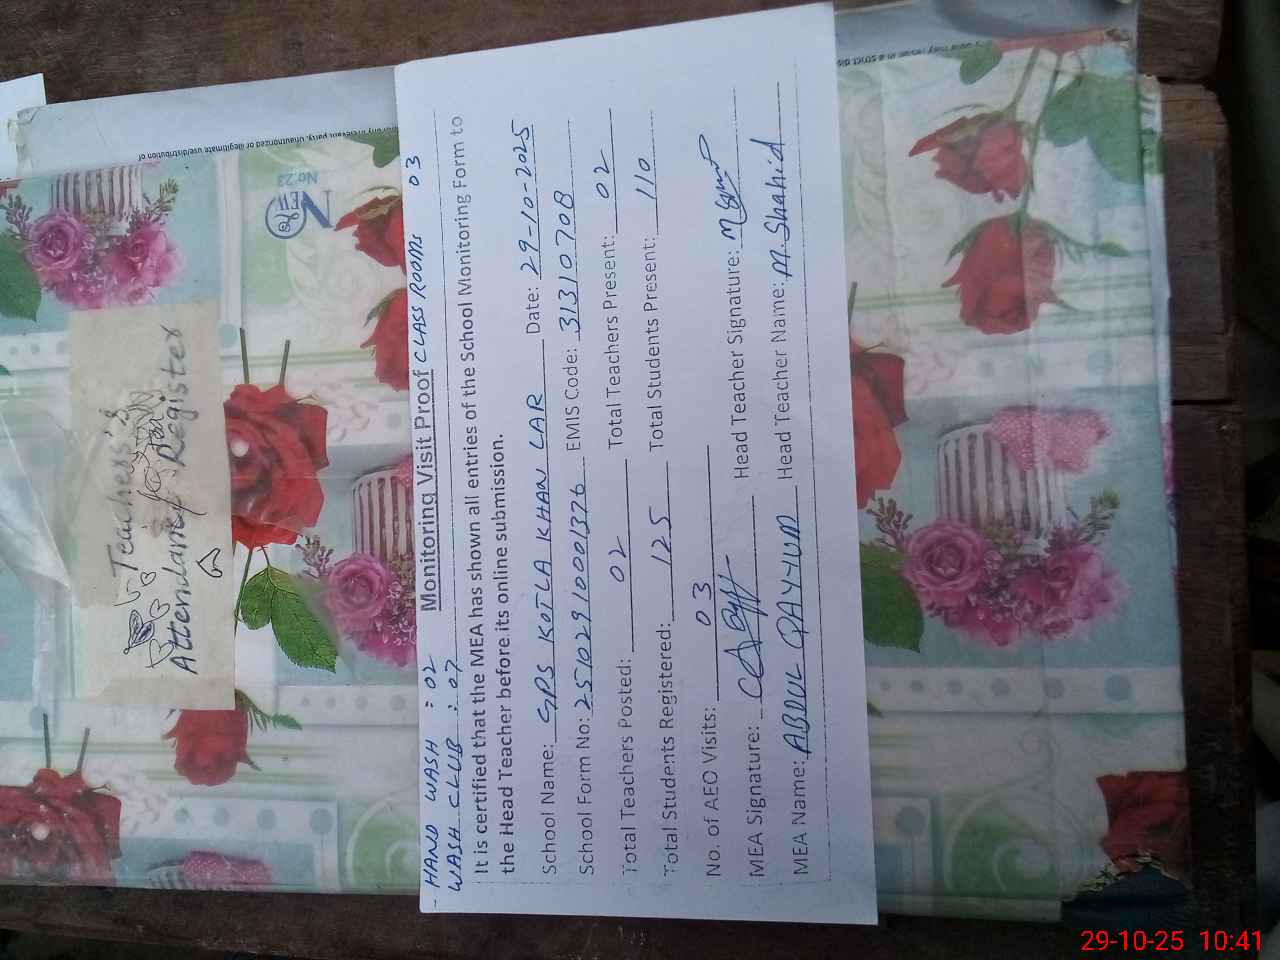 - HAND WASH : 02
WASH CLUB : 07
Monitoring Visit Proof CLASS ROOMS 03
It is certified that the MEA has shown all entries of the School Monitoring Form to
the Head Teacher before its online submission.
School Name: GPS KOTLA KHAN LAR Date: 29-10-2025
School Form No: 25102910001376 EMIS Code: 31310708
Total Teachers Posted: 02 Total Teachers Present: 02
Total Students Registered: 125 Total Students Present: 110
No. of AEO Visits: 03
MEA Signature: Head Teacher Signature:
MEA Name: ABDUL QAYYUM Head Teacher Name: M. Shahid
Teachers's
Attendance Register
NEW
No.23
any irrelevant party. Unauthorized or illegitimate use/distribution of
may result in a strict dis
29-10-25 10:41